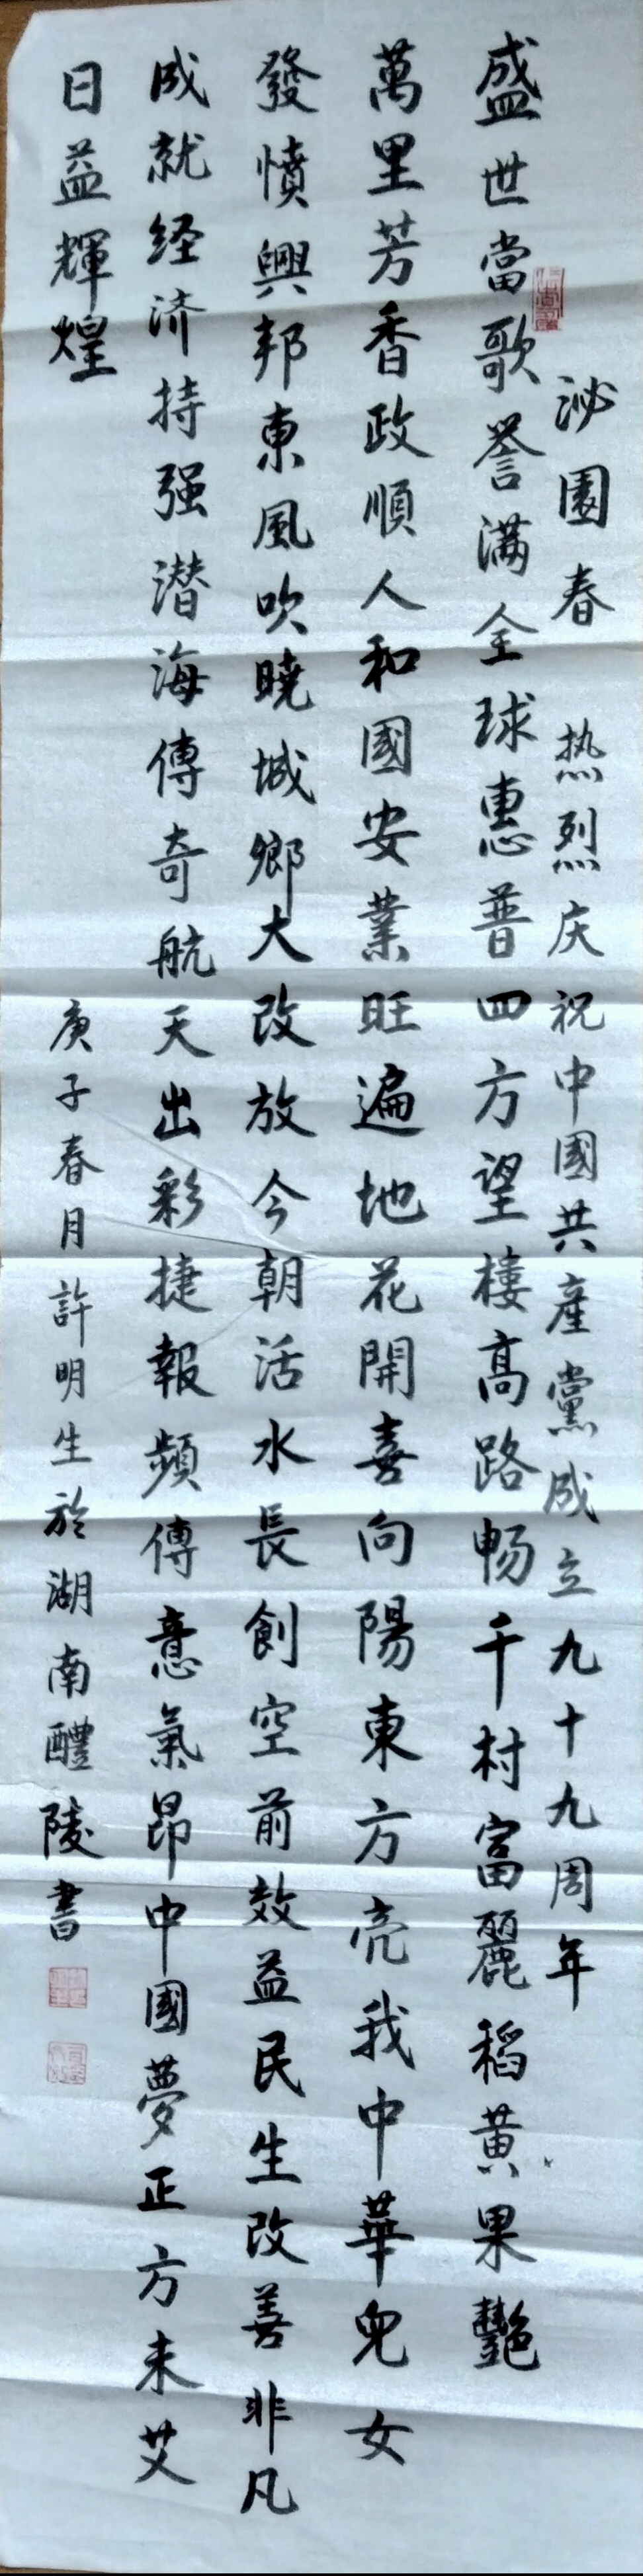 泌園春 热烈庆祝中國共產黨成立九十九周年
盛世當歌誉满全球惠普四方望楼高路畅千村富麗稻黄果艷
萬里芳香政順人和國安業旺遍地花開喜向陽東方亮我中華兒女
發憤興邦東風吹曉城鄉大改放今朝活水長創空前效益民生改善非凡
成就经济持强潜海傳奇航天出彩捷報頻傳意氣昂中國夢正方未艾
日益輝煌
庚子春月許明生於湖南醴陵書